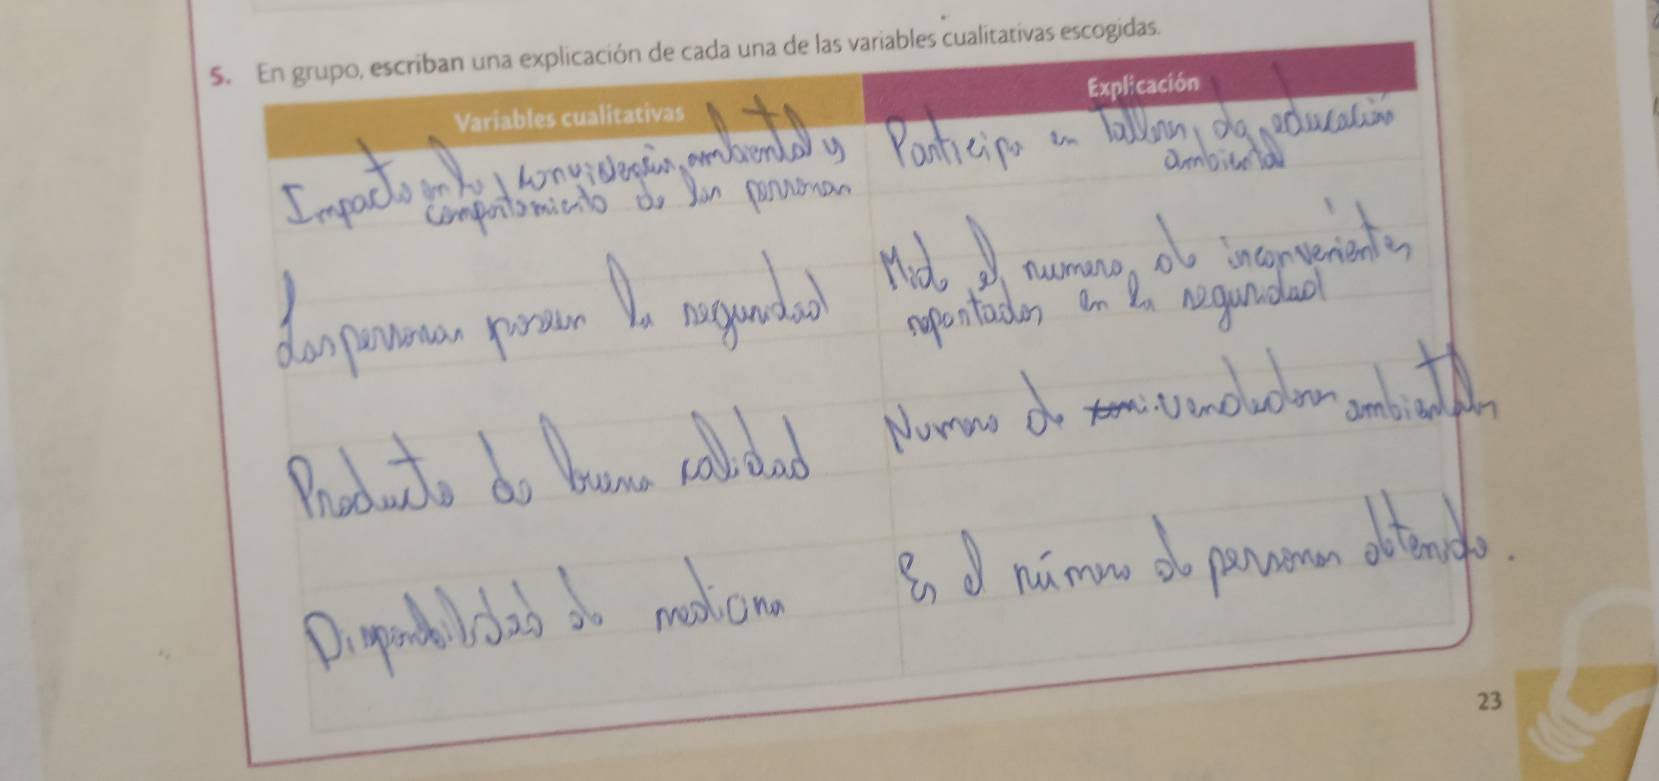 5. En grupo, escriban una explicación de cada una de las variables cualitativas escogidas.
Variables cualitativas
Explicación
Impacto en la conviselación ambiental y
comportamiento de las personas
Participa en talleres de educación
ambiental
Las personas poseen la seguridad
Mide el numero de inconvenientes
reportados en la seguridad
Producto de buena calidad
Numero de vendedores ambientales
Disponibilidad de medicina
Es el número de personas obtenido.
23